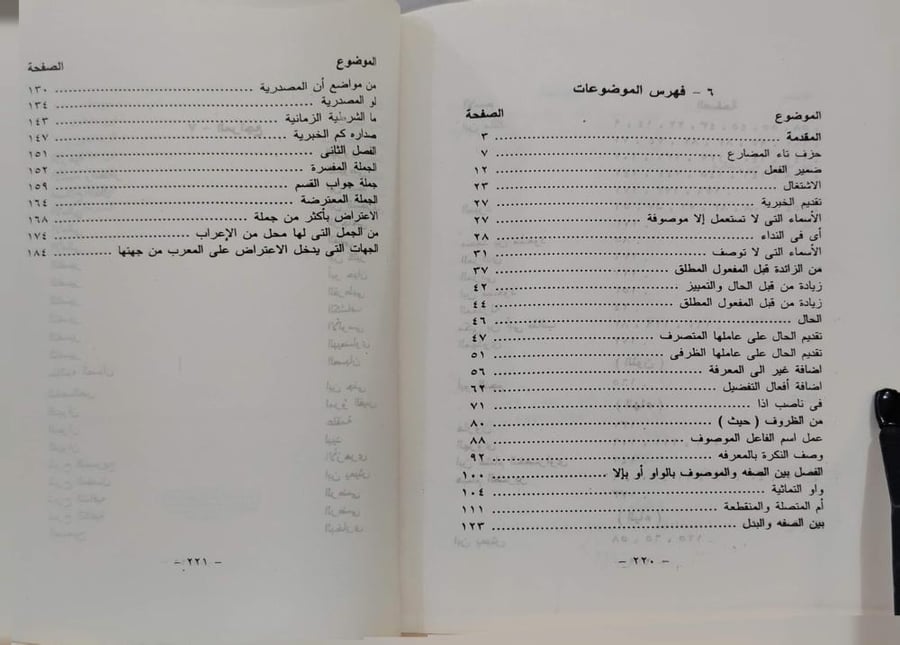 ٦ - فهرس الموضوعات
الموضوع الصفحة
المقدمة ٣
حزف تاء المضارع ٧
ضمير الفعل ١٢
الاشتغال ٢٣
تقديم الخبرية ٢٧
الأسماء التى لا تستعمل إلا موصوفة ٢٧
أى فى النداء ٢٨
الأسماء التى لا توصف ٣١
من الزائدة قبل المفعول المطلق ٣٧
زيادة من قبل الحال والتمييز ٤٢
زيادة من قبل المفعول المطلق ٤٤
الحال ٤٦
تقديم الحال على عاملها المتصرف ٤٧
تقديم الحال على عاملها الظرفى ٥١
اضافة غير الى المعرفة ٥٦
اضافة أفعال التفضيل ٦٢
فى ناصب اذا ٧١
من الظروف ( حيث ) ٨٠
عمل اسم الفاعل الموصوف ٨٨
وصف النكرة بالمعرفه ٩٢
الفصل بين الصفه والموصوف بالواو أو بإلا ١٠٠
واو الثمانية ١٠٤
أم المتصلة والمنقطعة ١١١
بين الصفه والبدل ١٢٣
- ٢٢٠ -
الموضوع الصفحة
من مواضع أن المصدرية ١٣٠
لو المصدرية ١٣٤
ما الشرطية الزمانية ١٤٣
صداره كم الخبرية ١٤٧
الفصل الثانى ١٥١
الجملة المفسرة ١٥٢
جملة جواب القسم ١٥٩
الجملة المعترضة ١٦٤
الاعتراض بأكثر من جملة ١٦٨
من الجمل التى لها محل من الإعراب ١٧٤
الجهات التى يدخل الاعتراض على المعرب من جهتها ١٨٤
- ٢٢١ -